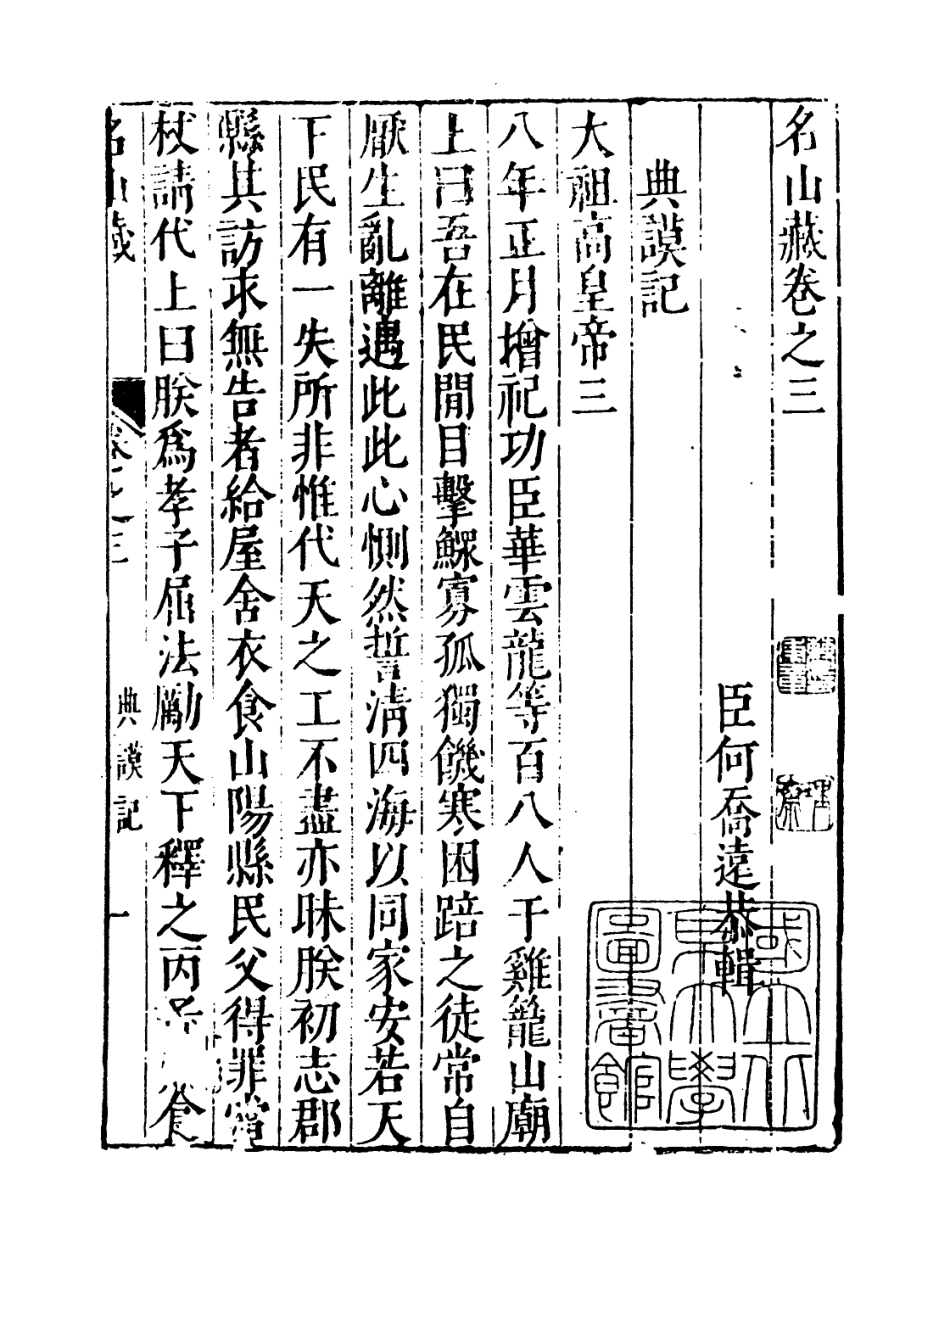 名山藏卷之三
臣何喬遠恭輯
典謨記
太祖高皇帝三
八年正月增祀功臣華雲龍等百八人于雞籠山廟
上曰吾在民間目擊鰥寡孤獨饑寒困踣之徒常自
厭生亂離遇此此心惻然誓清四海以同家安若天
下民有一失所非惟代天之工不盡亦昧朕初志郡
縣其訪求無告者給屋舍衣食山陽縣民父得罪當
杖請代上曰朕為孝子屈法勵天下釋之丙 食
名山藏 卷之三 典謨記 一
國立北平大學圖書館